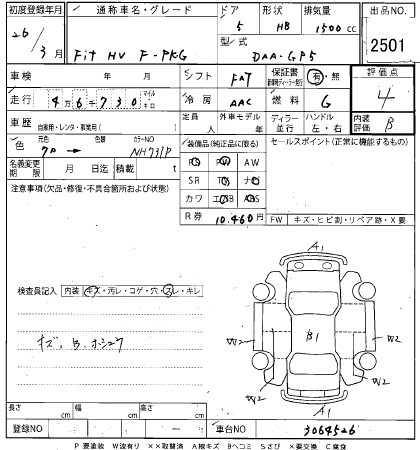 初度登録年月 通称車名・グレード ドア 形状 排気量 出品NO.
26/3月 Fit HV F-PKG 5 HB 1500cc 2501
型式 DAA-GP5
車検 年 月 シフト FAT 保証書 有・無 評価点
走行 4万6千730 マイル キロ 冷房 AAC 燃料 G 4
車歴 自家用・レンタ・事業用( ) 定員 人 外車モデル 年 ディーラー 並行 ハンドル 左・右 内装評価 B
色 元色 色替 カラーNO NH731P
装備品(純正品に限る) セールスポイント(正常に機能するもの)
PS PW AW
名義変更期限 月 日迄 積載 t
SR TV ナビ
注意事項(欠品・修復・不具合箇所および状態)
カワ エアB ABS
R券 10.460円
FW キズ・ヒビ割・リペア跡・X要
A1
検査員記入 内装 キズ・汚レ・コゲ・穴・スレ・キレ
キズ、B、ホシュウ
B1
W2 W2
W2 W2
A1
長さ cm 幅 cm 高さ cm
登録NO 車台NO 3064526
P要塗装 W波有り ××取替済 A線キズ Bヘコミ Sさび ×要交換 C腐食